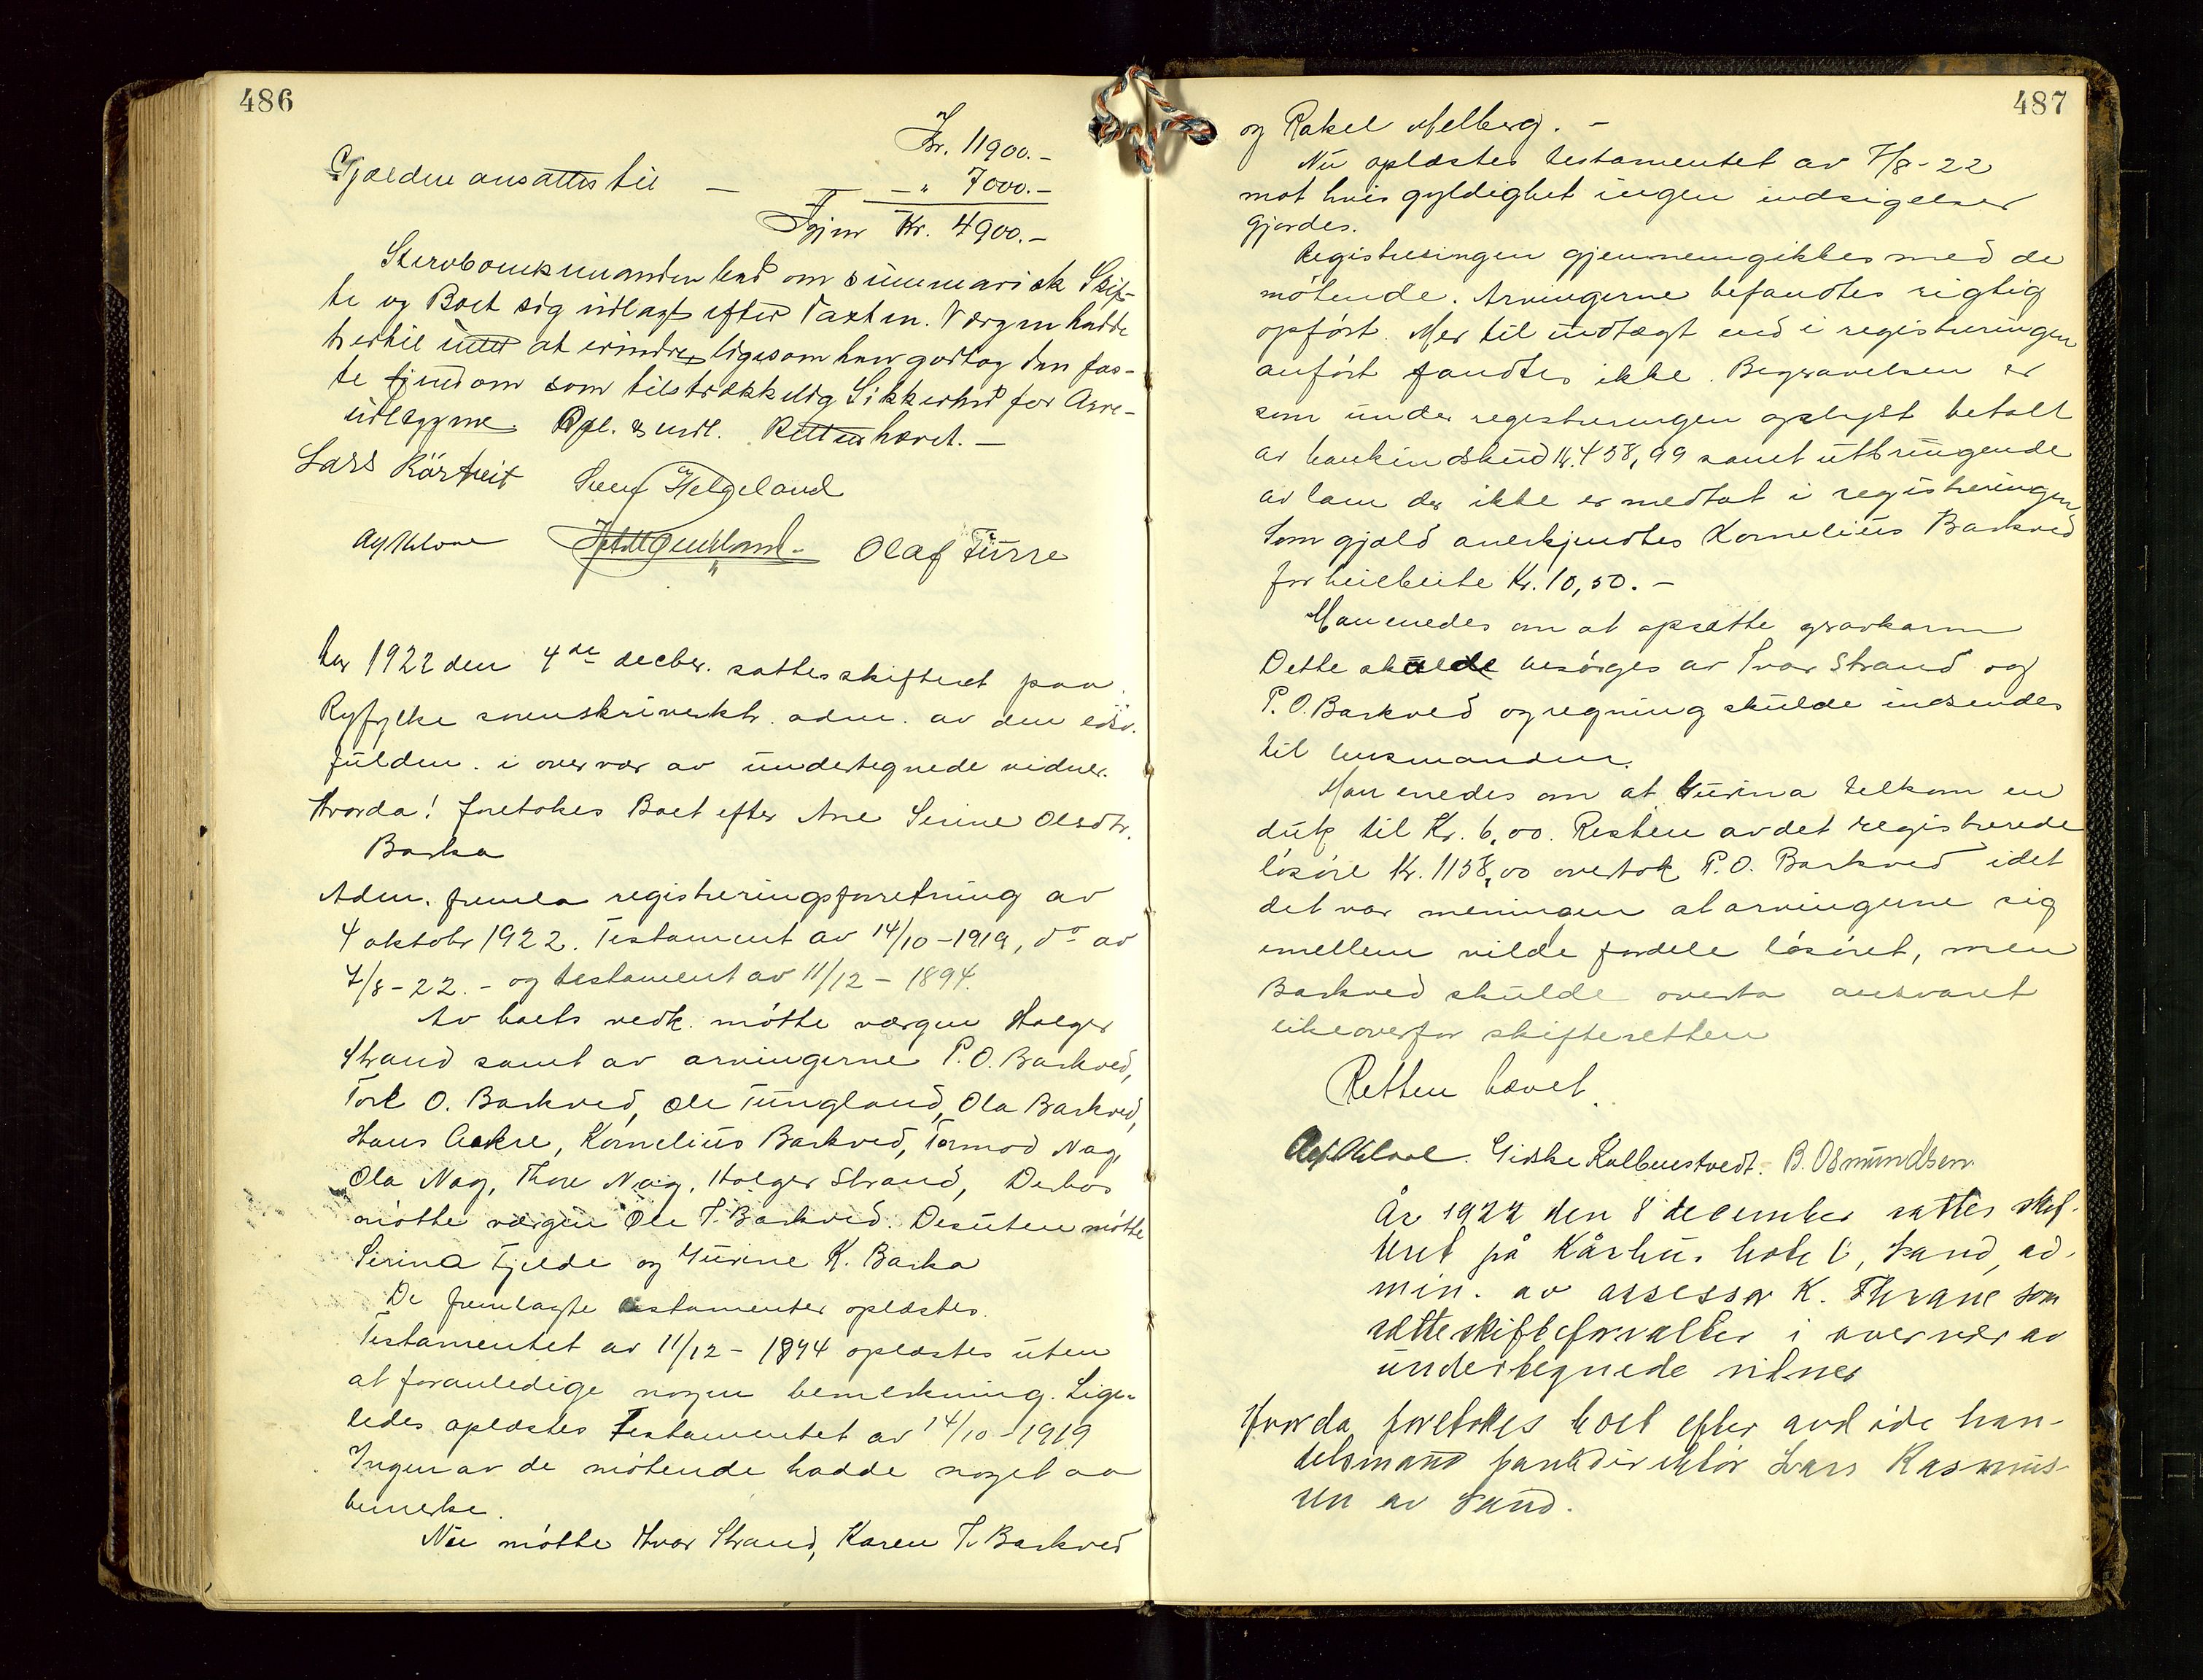 486
Kr. 11900.-
Gjælden ansattes til — — - " 7000.-
Igjen Kr. 4900.-
Stervboenkemanden bad om summarisk Skif-
te og Boet sig utlagt efter Taxten. Vergen hadde
hertil intet at erindre, ligesom han godtog den fas-
te Eiendom som tilstrækkelig Sikkerhed for Arve-
utlæggene. Opl. & vedt. Retten hævet. —
Lars Rörtveit Helgeland
Olaf Fürre
Aar 1922 den 4de decbr. sattes skifteret paa
Ryfylke sorenskriverktr. adm. av den edsv.
fuldm. i overvær av undertegnede vidner.
Hvorda! foretokes Boet efter Ane Serine Olsdtr.
Barka
Adm. fremla registreringsforretning av
4 oktobr 1922. Testament av 14/10-1919, do av
7/8-22.- og testament av 11/12-1894.
Av boets vedk. mötte værgen Holger
Strand samt av arvingerne P.O. Barkved,
Tore O. Barkved, Ole Tungland, Ola Barkved,
Hans Aakre, Kornelius Barkved, Tormod Nag,
Ola Nag, Thore Nag, Holger Strand, Derhos
mötte værgen Ole T. Barkved. Desuten mötte
Serina Fjelde og Gurine K. Barka
De fremlagte testamenter oplæstes.
Testamentet av 11/12-1894 oplæstes uten
at foranledige nogen bemerkning. Lige-
ledes oplæstes Testamentet av 14/10-1919
Ingen av de mötende hadde noget aa
bemerke.
Nu mötte Ivar Strand, Karen T. Barkved
487
og Rakel Melberg. -
Nu oplæstes testamentet av 7/8-22
mot hvis gyldighet ingen indsigelser
gjordes.
Registreringen gjennemgikkes med de
mötende. Arvingerne befandtes rigtig
opfört. Mer til indtægt end i registreringen
anfört fandtes ikke. Begravelsen er
som under registreringen oplyst betalt
av bankindskud Kr. 458,99 samt utbringende
av lam der ikke er medtat i registreringen
Som gjæld anerkjendtes Kornelius Barkved
for heibeite Kr. 10,50. -
Man enedes om at opsætte gravkarm
Dette skulde besörges av Ivar Strand og
P.O. Barkved og regning skulde indsendes
til lensmanden.
Man enedes om at Gurina tilkom en
duk til Kr. 6,00. Resten av det registrerede
lösöre Kr. 1158,00 overtok P.O. Barkved idet
det var meningen at arvingerne sig
imellem vilde fordele lösöret, men
Barkved skulde overta ansvaret
likeoverfor skifteretten
Retten hævet.
Giske Kolbenstvedt. B. Osmundsen.
År 1922 den 8 december sattes skif-
teret på Kårhus hotel, Sand, ad-
min. av assessor K. Thrane som
sætteskifteforvalter i overvær av
undertegnede vidner
Hvorda foretokes boet efter avdöde han-
delsmand bankdirektör Lars Rasmus-
sen av Sand.